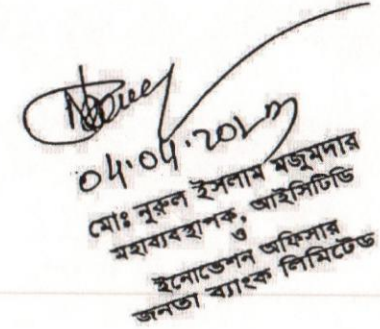 ০৫.০৪.২০২৩
মোঃ নূরুল ইসলাম মজুমদার
মহাব্যবস্থাপক, আইসিটিডি
ও
ইনোভেশন অফিসার
জনতা ব্যাংক লিমিটেড